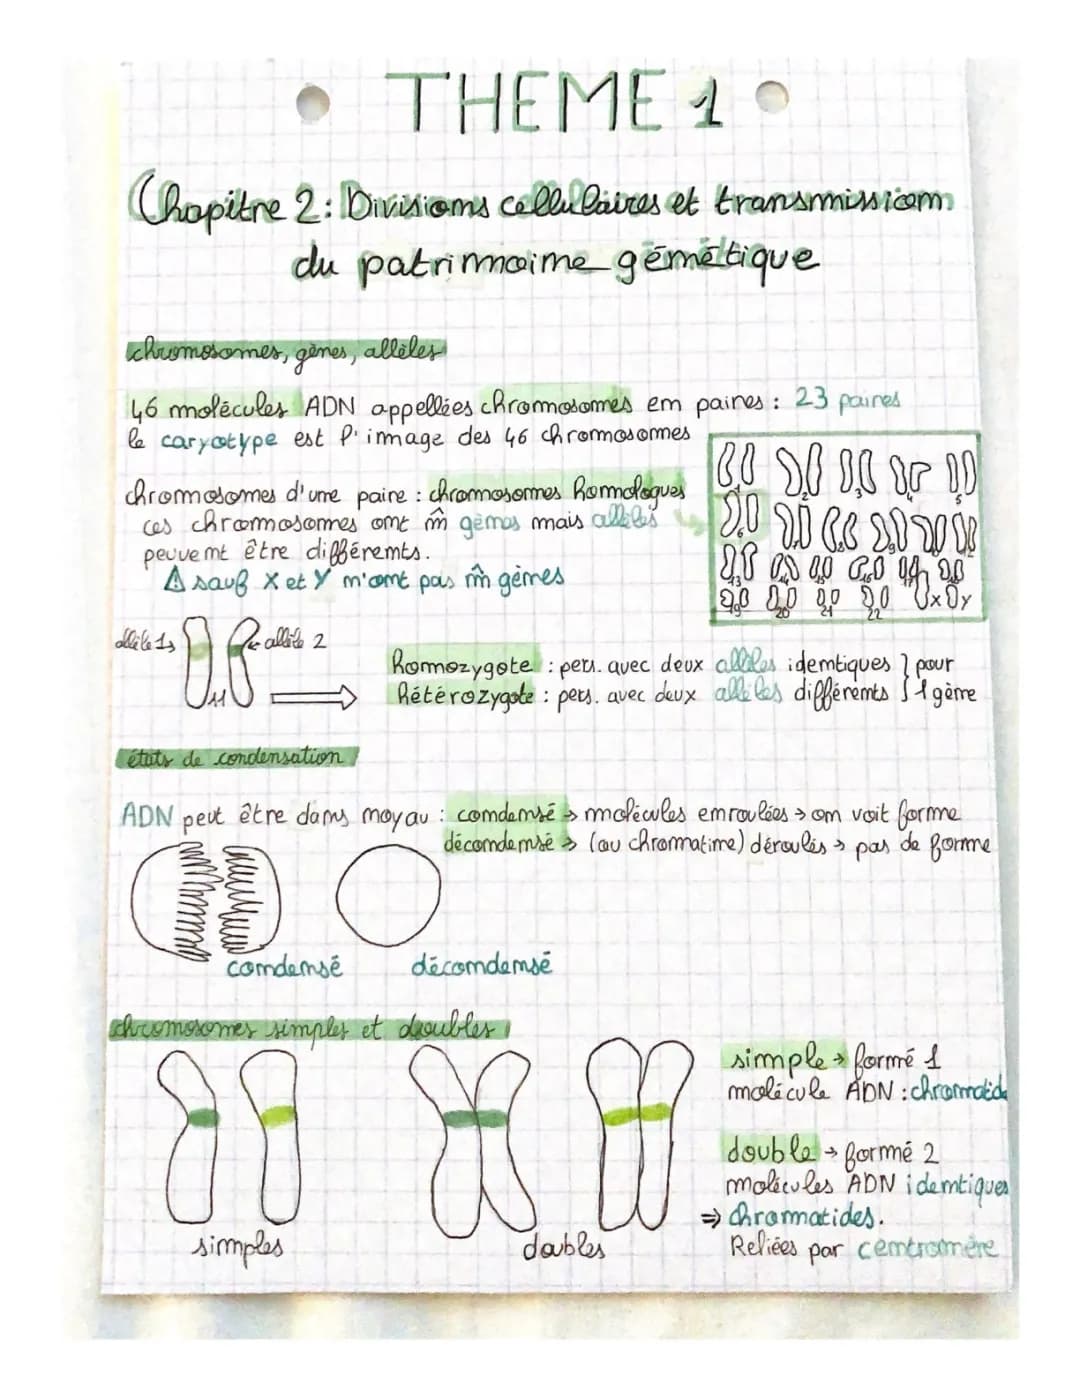 THEME 1
Chapitre 2: Divisions cellulaires et transmission
du patrimoine génétique
chromosomes, gènes, allèles
46 molécules ADN appellées chromosomes en paires : 23 paires
le caryotype est l'image des 46 chromosomes
chromosomes d'une paire : chromosomes homologues
ces chromosomes ont m̂ gènes mais allèles
peuvent être différents.
⚠ sauf X et Y n'ont pas m̂ gènes
allèle 1 → ← allèle 2
homozygote : pers. avec deux allèles identiques } pour
hétérozygote : pers. avec deux allèles différents } 1 gène
états de condensation
ADN peut être dans noyau : condensé → molécules enroulées → on voit forme
décondensé → (ou chromatine) déroulés → pas de forme
condensé décondensé
chromosomes simples et doubles
simple → formé 1
molécule ADN : chromatide
double → formé 2
molécules ADN identiques
⇒ chromatides.
Reliées par centromère
simples doubles